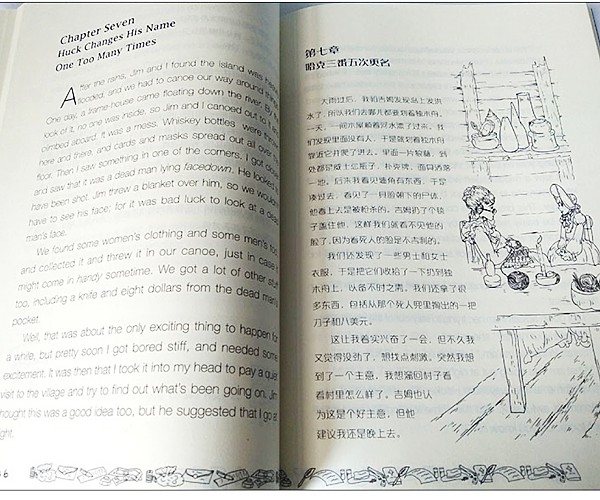 Chapter Seven
Huck Changes His Name
One Too Many Times
After the rains, Jim and I found the island was
flooded, and we had to canoe our way around
One day, a frame-house came floating down the river. By the
look of it, no one was inside, so Jim and I canoed out to
climbed aboard. It was a mess. Whiskey bottles were
here and there, and cards and masks spread out all over
floor. Then I saw something in one of the corners. I got
and saw that it was a dead man lying facedown. He looked
have been shot. Jim threw a blanket over him, so we wouldn't
have to see his face; for it was bad luck to look at a dead
man's face.
We found some women's clothing and some men's too,
and collected it and threw it in our canoe, just in case it
might come in handy sometime. We got a lot of other stuff
too, including a knife and eight dollars from the dead man's
pocket.
Well, that was about the only exciting thing to happen for
a while, but pretty soon I got bored stiff, and needed some
excitement. It was then that I took it into my head to pay a quiet
visit to the village and try to find out what's been going on. Jim
thought this was a good idea too, but he suggested that I go at
night.
6
第七章
哈克三番五次更名
大雨过后，我们吉姆发现岛上发洪
水了，所以我们去哪儿都要划着独木舟。
一天，一间木屋顺着河水漂了过来，我
们发现里面没有人，于是就划着独木舟
靠近它并爬了进去。里面一片狼藉，到
处都是威士忌瓶子，扑克牌，面具洒落
一地。后来我看见墙角有东西，于是
凑过去，看见了一具脸朝下的尸体，
他看上去是被枪杀的。吉姆扔了个毯
子盖住他，这样我们就看不见他的
脸了，因为看死人的脸是不吉利的。
我们还发现了一些男士和女士
衣服，于是把它们收拾了一下扔到独
木舟上，以备不时之需，我们还拿了很
多东西，包括从那个死人兜里掏出的一把
刀子和八美元。
这让我着实兴奋了一会，但不久我
又觉得没劲了，想找点刺激。突然我想
到了一个主意，我想溜回村子看
看村里怎么样了。吉姆也认
为这是个好主意，但他
建议我还是晚上去。